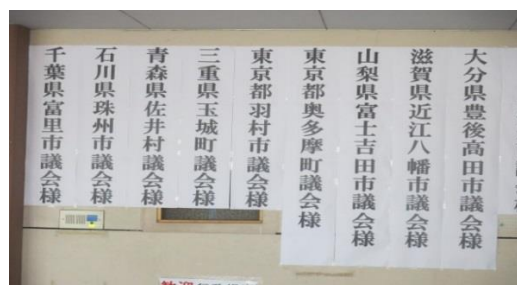 大分県豊後高田市議会様
滋賀県近江八幡市議会様
山梨県富士吉田市議会様
東京都奥多摩町議会様
東京都羽村市議会様
三重県玉城町議会様
青森県佐井村議会様
石川県珠州市議会様
千葉県富里市議会様
歓迎